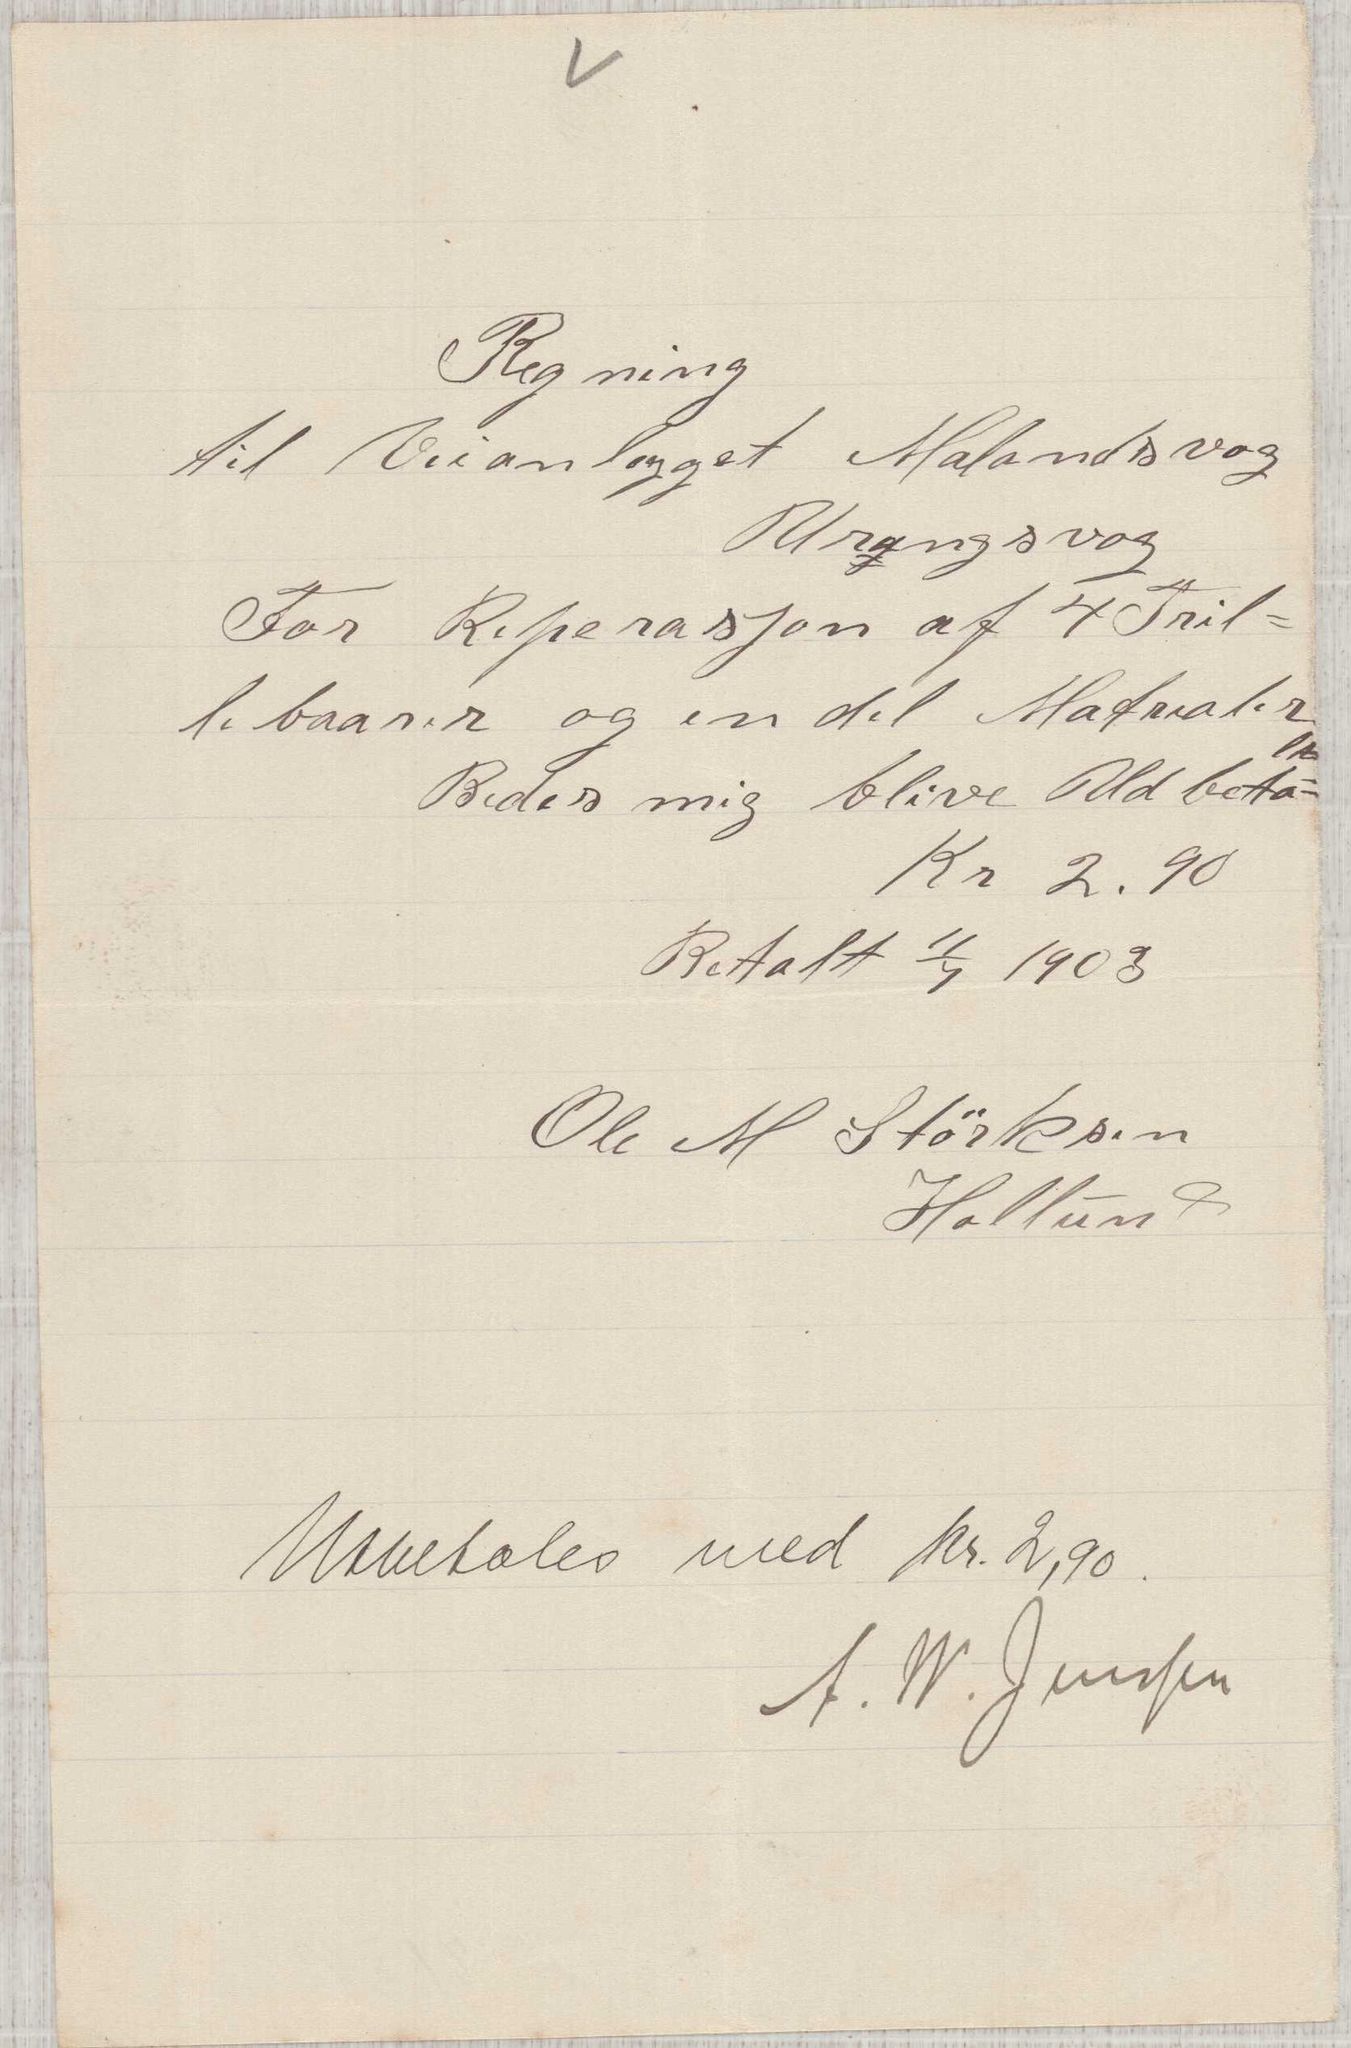 V
Regning
til Veianlegget Malandsvog
Urangsvog
For Reperassjon af 4 Tril=
lebaarer og en del Matrealer
Bedes mig blive Udbeta=
les
Kr 2. 90
Betalt 11/7 1903
Ole M Störksen
Hollund
Utbetales med kr. 2,90.
A. W. Jenssen